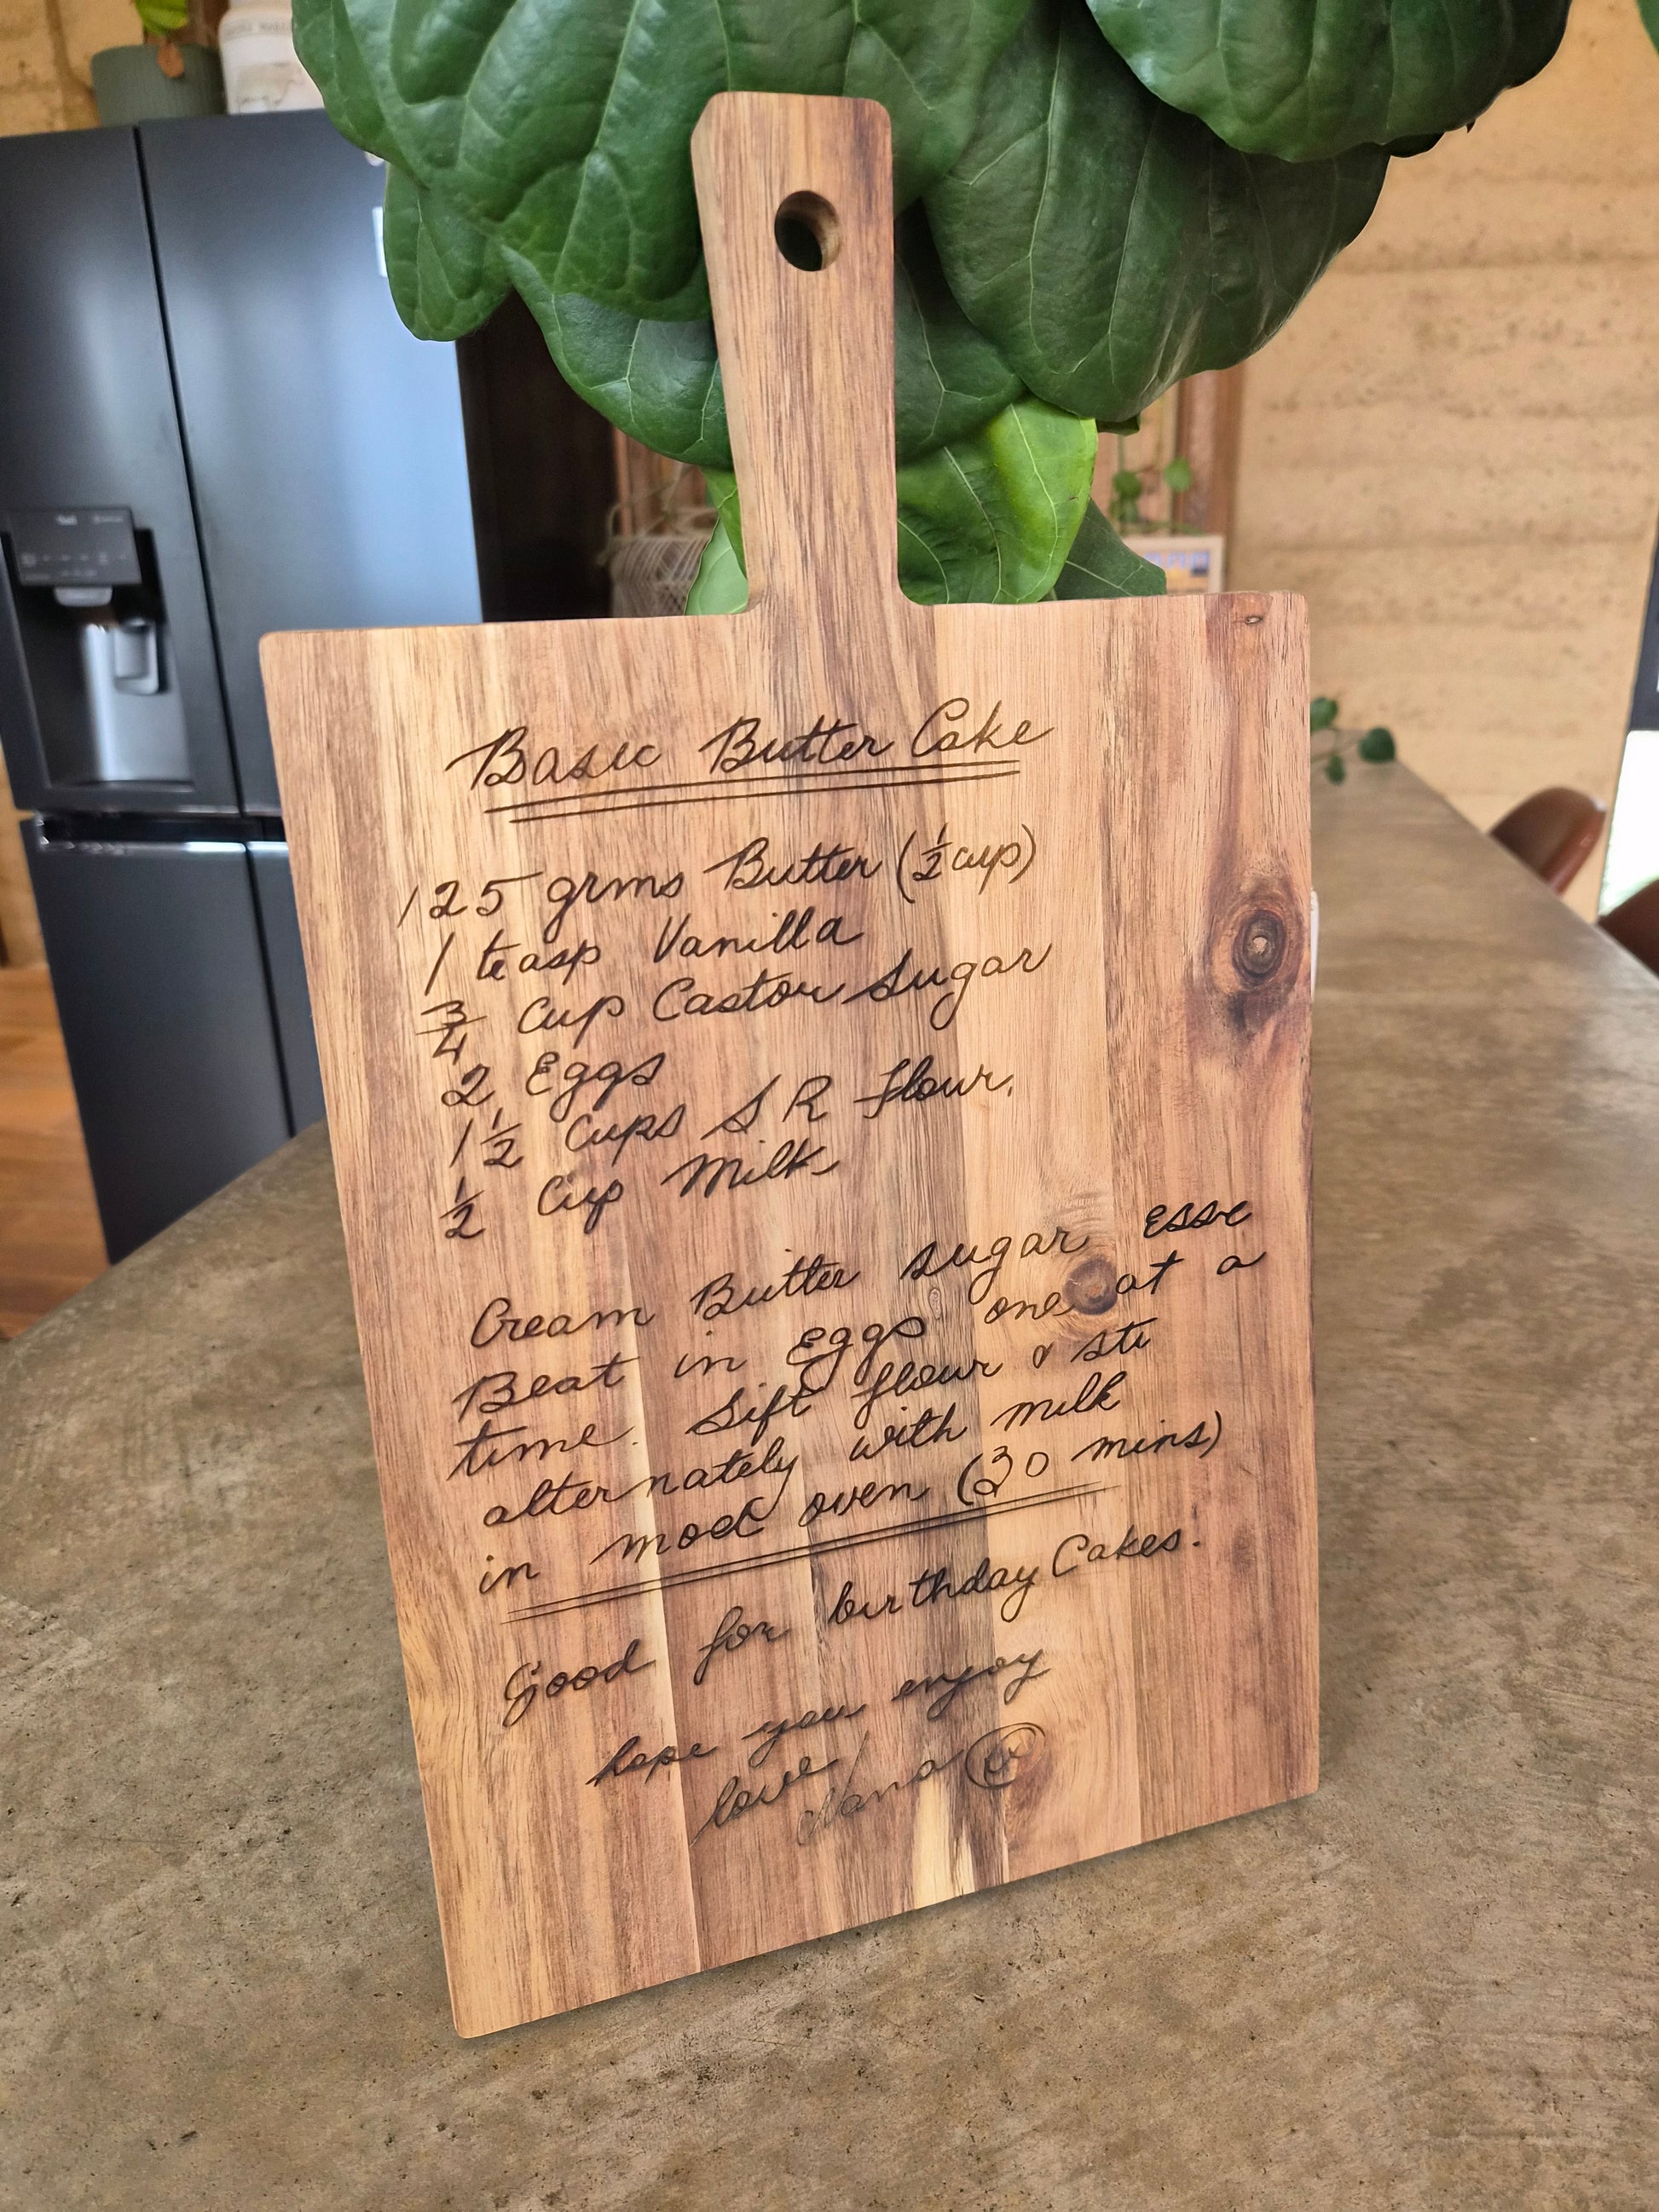 Basic Butter Cake
125 grms Butter (½ cup)
1 teasp Vanilla
¾ Cup Castor Sugar
2 Eggs
1½ Cups S R Flour.
½ Cup Milk
Cream Butter sugar esse
Beat in Eggs one at a
time. Sift flour & sti
alternately with milk
in mod oven (30 mins)
Good for birthday Cakes.
hope you enjoy
love
Nana